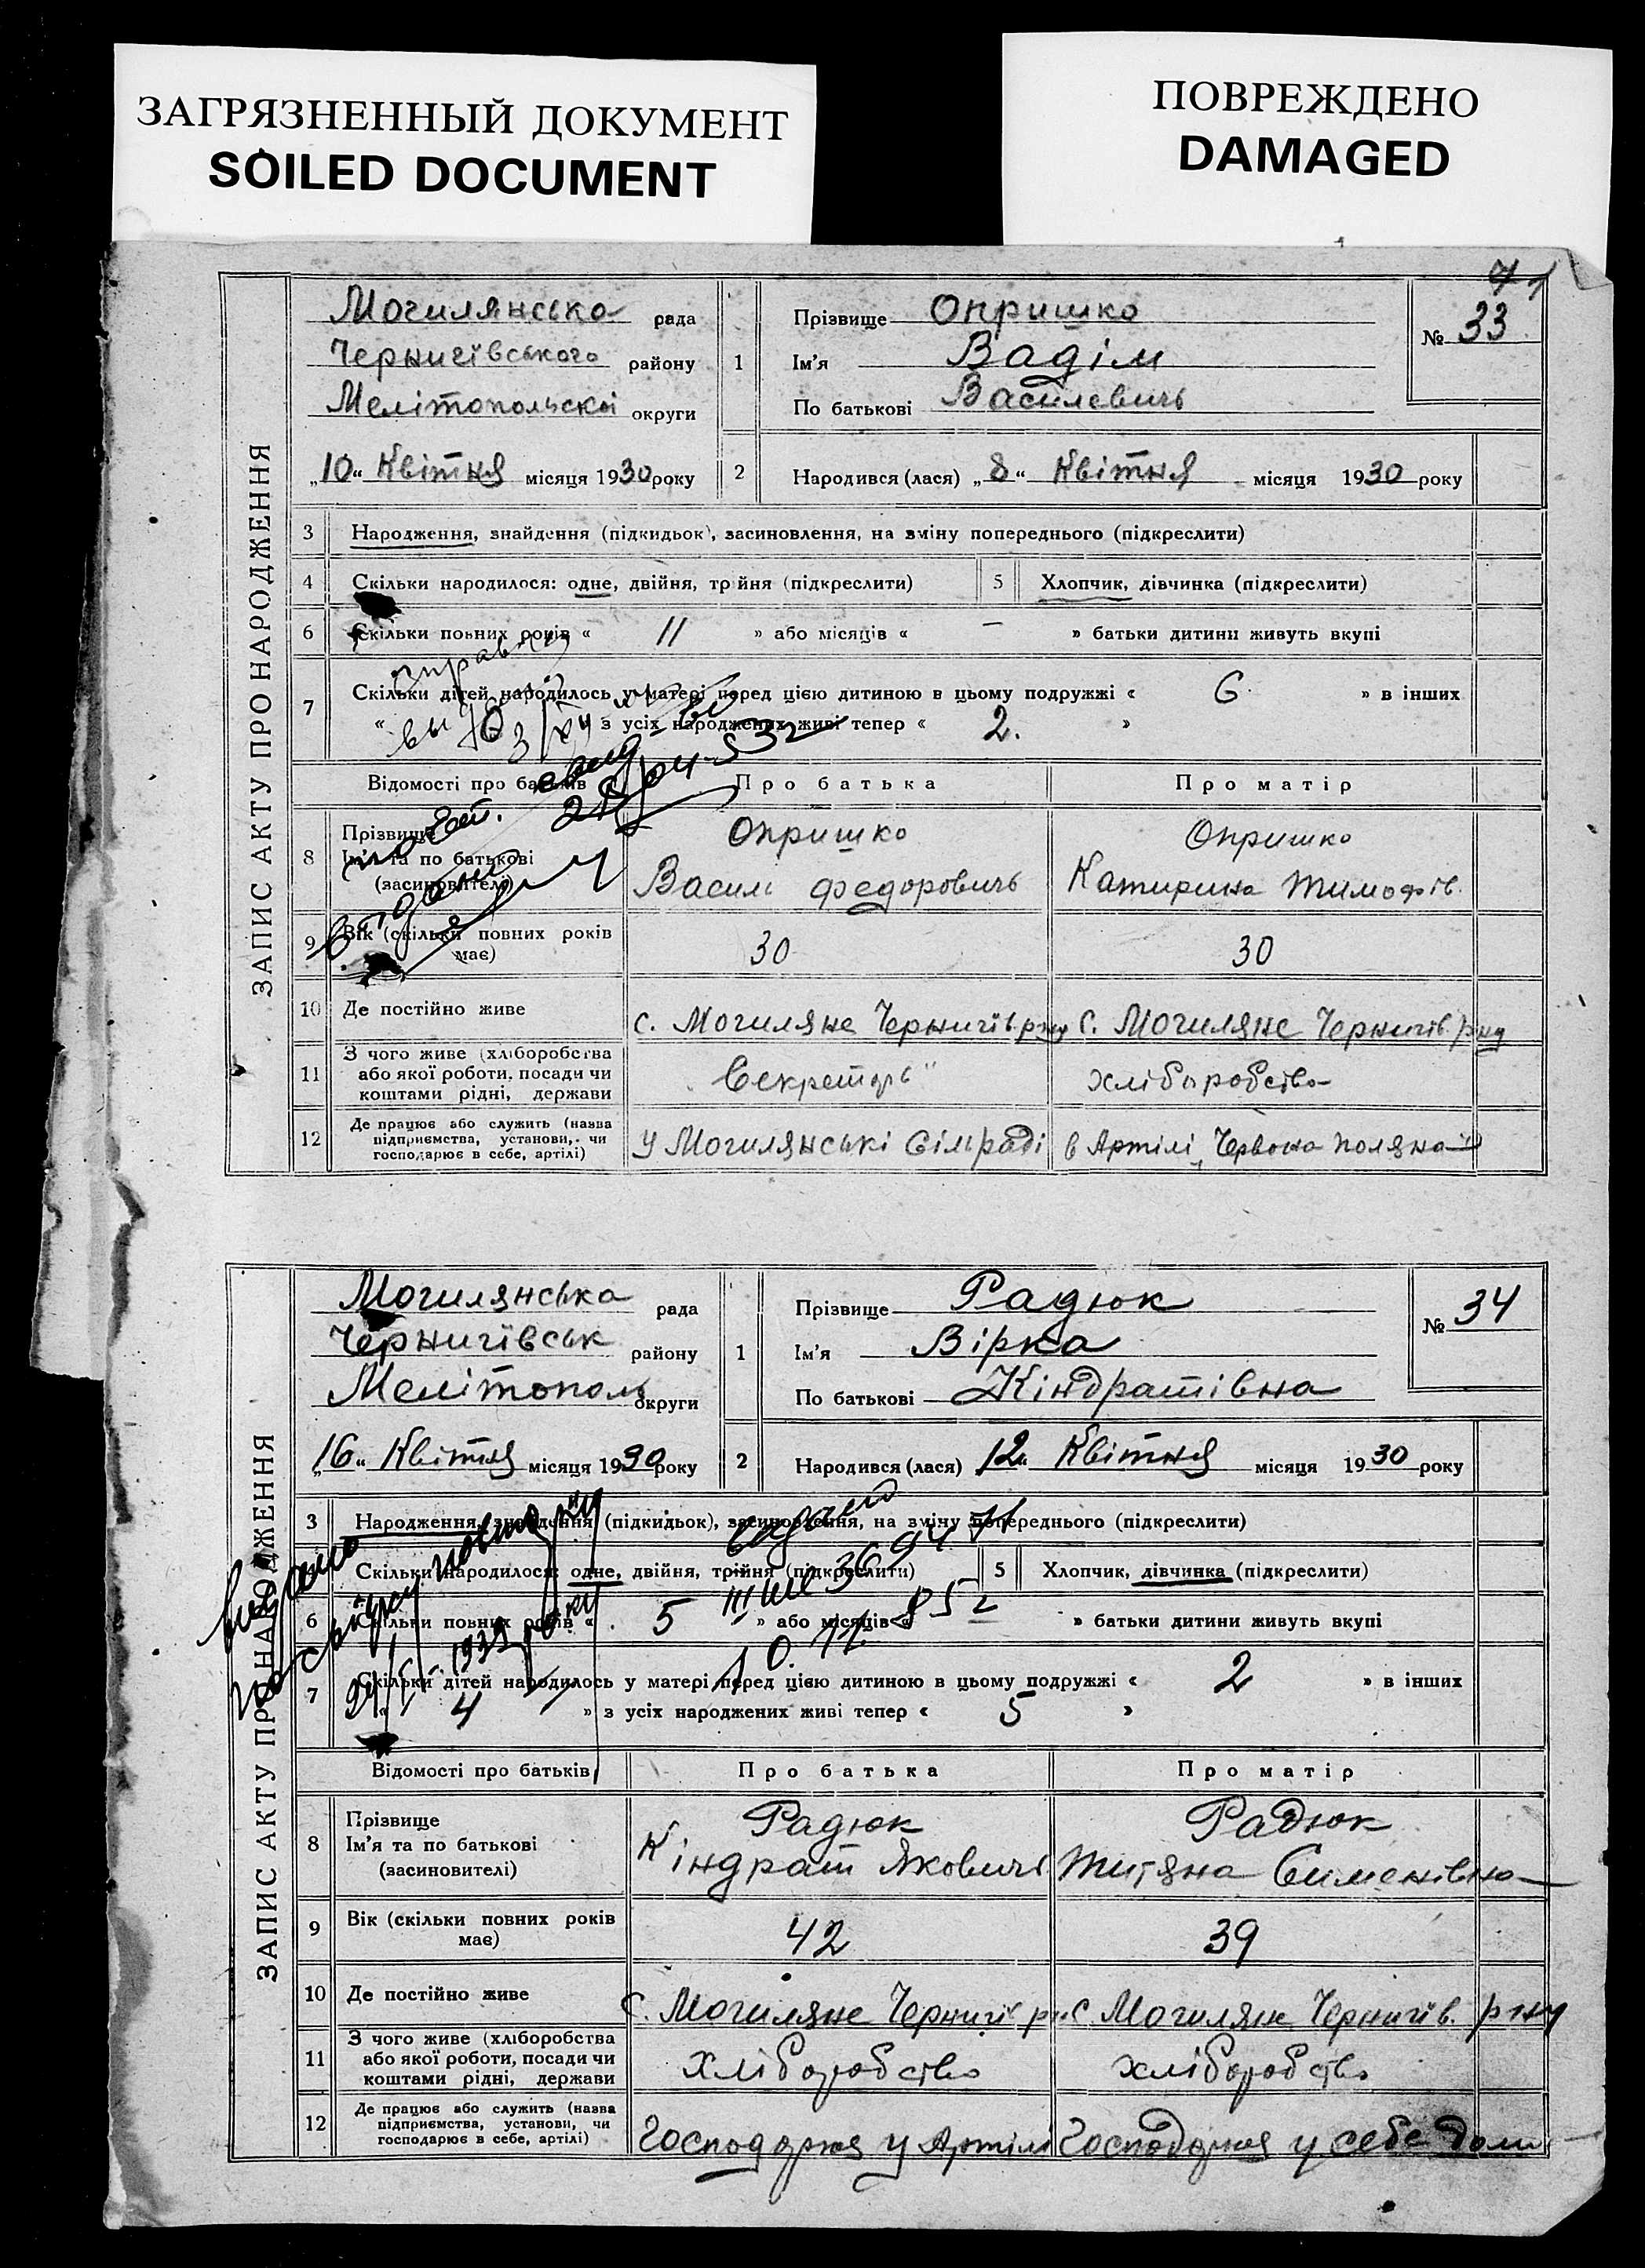 ЗАГРЯЗНЕННЫЙ ДОКУМЕНТ
SOILED DOCUMENT
ПОВРЕЖДЕНО
DAMAGED
ЗАПИС АКТУ ПРО НАРОДЖЕННЯ
Могилянсько рада
Чернигівського району
Мелітопольскої округи
„10“ Квітня місяця 1930 року
1
Прізвище Опришко
Ім'я Вадім
По батькові Василевичь
№ 33
2
Народився (лася) „8“ Квітня місяця 1930 року
3 Народження, знайдення (підкидьок), засиновлення, на зміну попереднього (підкреслити)
4 Скільки народилося: одне, двійня, трійня (підкреслити)
5 Хлопчик, дівчинка (підкреслити)
6 Скільки повних років « 11 » або місяців « – » батьки дитини живуть вкупі
7 Скільки дітей народилось у матері перед цією дитиною в цьому подружжі « 6 » в інших
« » з усіх народжених живі тепер « 2. »
Відомості про батьків Про батька Про матір
8 Прізвище Ім'я та по батькові (засиновителі)
Опришко
Васил Федоровичь
Опришко
Катирина Тимофів.
9 Вік (скільки повних років має) 30 30
10 Де постійно живе с. Могиляне Чернигів. рну с. Могиляне Чернигів. рну
11 З чого живе (хліборобства
або якої роботи, посади чи
коштами рідні, держави
„Секретарь“ хліборобство
12 Де працює або служить (назва
підприємства, установи, чи
господарює в себе, артілі)
У Могилянські Сільраді в Артілі „Червона Поляна“
ЗАПИС АКТУ ПРО НАРОДЖЕННЯ
Могилянська рада
Чернигівськ району
Мелітополь округи
„16“ Квітня місяця 1930 року
1
Прізвище Радюк
Ім'я Вірка
По батькові Кіндратівна
№ 34
2
Народився (лася) „12“ Квітня місяця 1930 року
3 Народження, знайдення (підкидьок), засиновлення, на зміну попереднього (підкреслити)
Скільки народилося: одне, двійня, трійня (підкреслити)
5 Хлопчик, дівчинка (підкреслити)
6 Скільки повних років « 5 » або місяців « » батьки дитини живуть вкупі
7 Скільки дітей народилось у матері перед цією дитиною в цьому подружжі « 2 » в інших
« 4 » з усіх народжених живі тепер « 5 »
Відомості про батьків Про батька Про матір
8 Прізвище
Ім'я та по батькові
(засиновителі)
Радюк
Кіндрат Яковичь
Радюк
Титяна Сименівна
9 Вік (скільки повних років має) 42 39
10 Де постійно живе с. Могиляне Чернигів с. Могиляне Чернигів. рну
11 З чого живе (хліборобства
або якої роботи, посади чи
коштами рідні, держави
Хліборобство хліборобство
12 Де працює або служить (назва
підприємства, установи, чи
господарює в себе, артілі)
Господарює у Артілі Господарює у себе дома